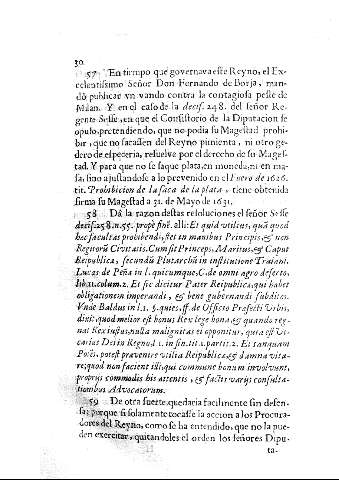 30
57 En tiempo que governava este Reyno, el Ex-
celentissimo Señor Don Fernando de Borja, man-
dò publicar vn vando contra la contagiosa peste de
Milan. Y en el caso de la decis. 248. del señor Re-
gente Sesse, en que el Consistorio de la Diputacion se
opuso, pretendiendo, que no podia su Magestad prohi-
bir, que no sacassen del Reyno pimienta, ni otro ge-
nero de especeria, resuelve por el derecho de su Mages-
tad. Y para que no se saque plata en moneda, ni en ma-
sa, sino ajustandose a lo prevenido en el Fuero de 1626.
tit. Prohibicion de la saca de la plata, tiene obtenida
firma su Magestad a 31. de Mayo de 1631.
58 Dà la razon destas resoluciones el señor Sesse
decis. 258. n. 55. propè finè. alli: Et quid vtilius, quã quod
hec facultas prohibendi, sit in manibus Principis, & non
Regnorũ Civitatis. Cum sit Princeps, Maritus, & Caput
Reipublica, secundũ Plutarchũ in institutione Traiani.
Lucas de Peña in l. quicumque, C. de omni agro deserto,
lib. 11. colum. 2. Et sic dicitur Pater Reipublica, qui habet
obligationem imperandi, & bene gubernandi subditos.
Vnde Baldus in l. 1. §. quies, ff. de Officio Præfecti Vrbis,
dixit, quod melior est bonus Rex lege bona, & quando reg-
nat Rex iustus, nulla malignitas ei opponitur, quia est Vi-
carius Dei in Regno l. 1. in fin. tit. 1. partit. 2. Et tanquam
Pot.s. potest prævenire vtilia Reipublica, & damna vita-
re; quod non facient illi, qui commune bonum involvunt,
proprijs commodis his attentis, & facit varijs consulta-
tionibus Advocatorum.
59 De otra suerte quedaria facilmente sin defen-
sa; porque si solamente tocasse la accion a los Procura-
dores del Reyno, como se ha entendido, que no la pue-
den exercitar, quitandoles el orden los señores Dipu-
ta-